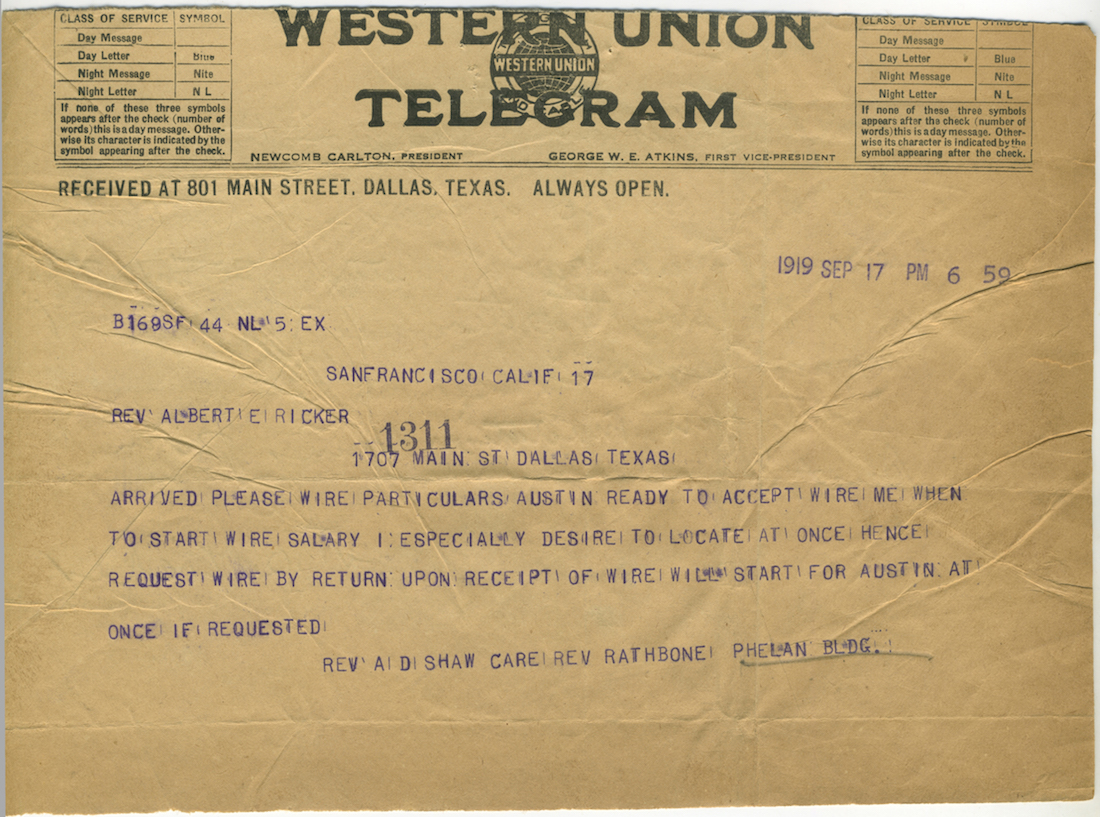 CLASS OF SERVICE SYMBOL
Day Message
Day Letter Blue
Night Message Nite
Night Letter N L
If none of these three symbols
appears after the check (number of
words) this is a day message. Other-
wise its character is indicated by the
symbol appearing after the check.
WESTERN UNION
WESTERN UNION
TELEGRAM
NEWCOMB CARLTON, PRESIDENT GEORGE W. E. ATKINS, FIRST VICE-PRESIDENT
CLASS OF SERVICE SYMBOL
Day Message
Day Letter Blue
Night Message Nite
Night Letter N L
If none of these three symbols
appears after the check (number of
words) this is a day message. Other-
wise its character is indicated by the
symbol appearing after the check.
RECEIVED AT 801 MAIN STREET, DALLAS, TEXAS. ALWAYS OPEN.
1919 SEP 17 PM 6 59
B169SF 44 NL 5 EX
SANFRANCISCO CALIF 17
REV ALBERT E RICKER
1311
1707 MAIN ST DALLAS TEXAS
ARRIVED PLEASE WIRE PARTICULARS AUSTIN READY TO ACCEPT WIRE ME WHEN
TO START WIRE SALARY I ESPECIALLY DESIRE TO LOCATE AT ONCE HENCE
REQUEST WIRE BY RETURN UPON RECEIPT OF WIRE WILL START FOR AUSTIN AT
ONCE IF REQUESTED
REV A D SHAW CARE REV RATHBONE PHELAN BLDG.